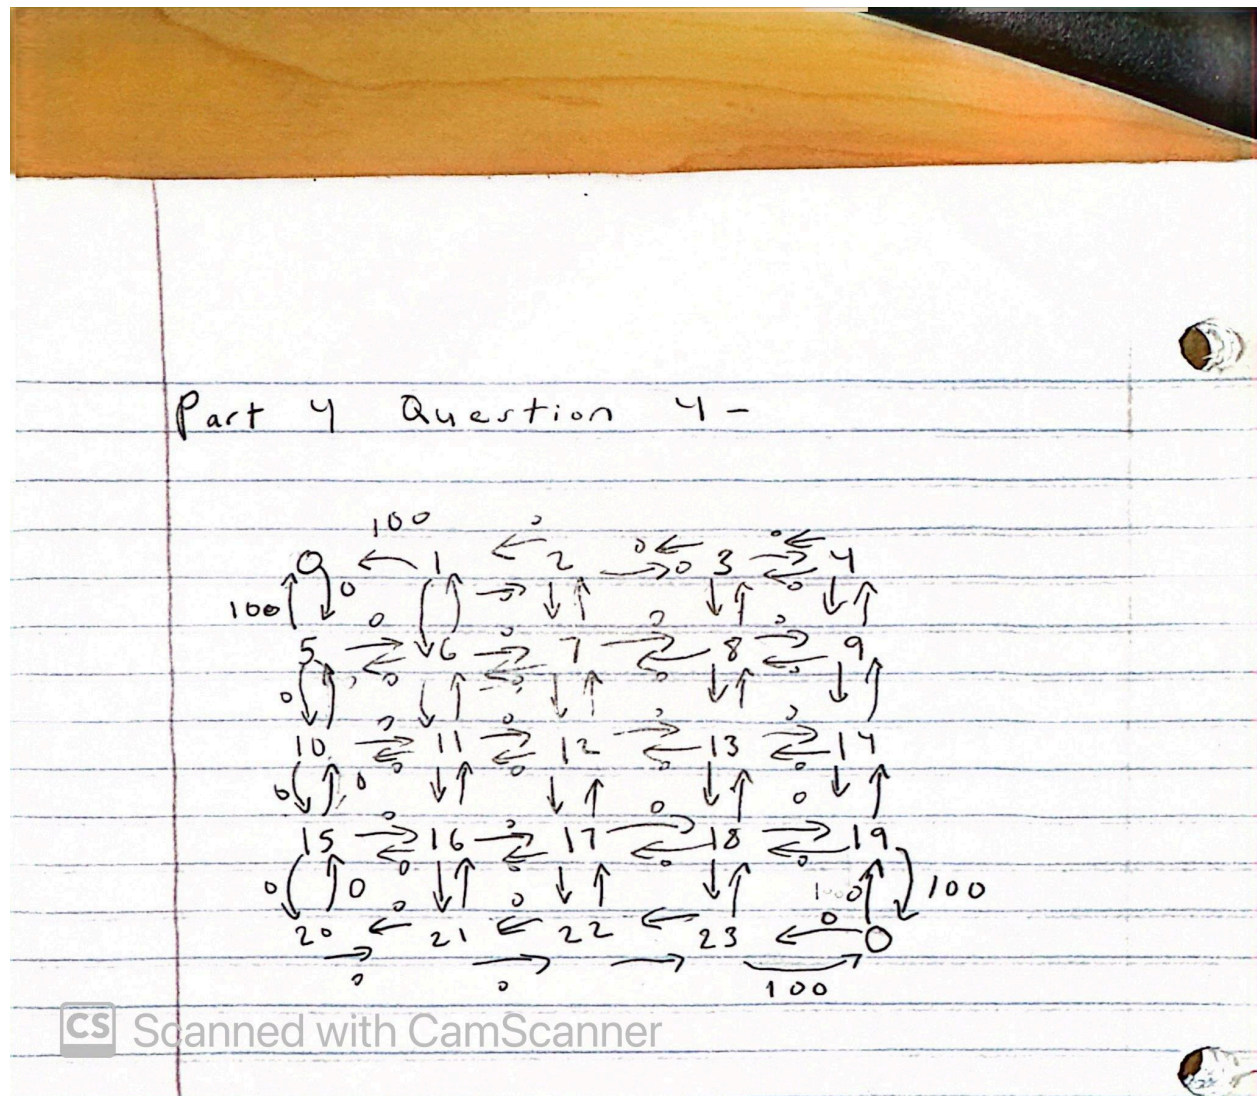 Part 4 Question 4 -
100 0
0 1 2 0 0 3 0 4
100 0 0 0 0 0 0
5 6 7 8 9
0 0 0 0 0
0 0 0 0
10 11 12 13 14
0 0 0 0 0 0
0 0 0 0
15 16 17 18 19
0 0 0 0 0 0 100 0 100
0 0 0
20 21 22 23 0
0 0 100
CS Scanned with CamScanner